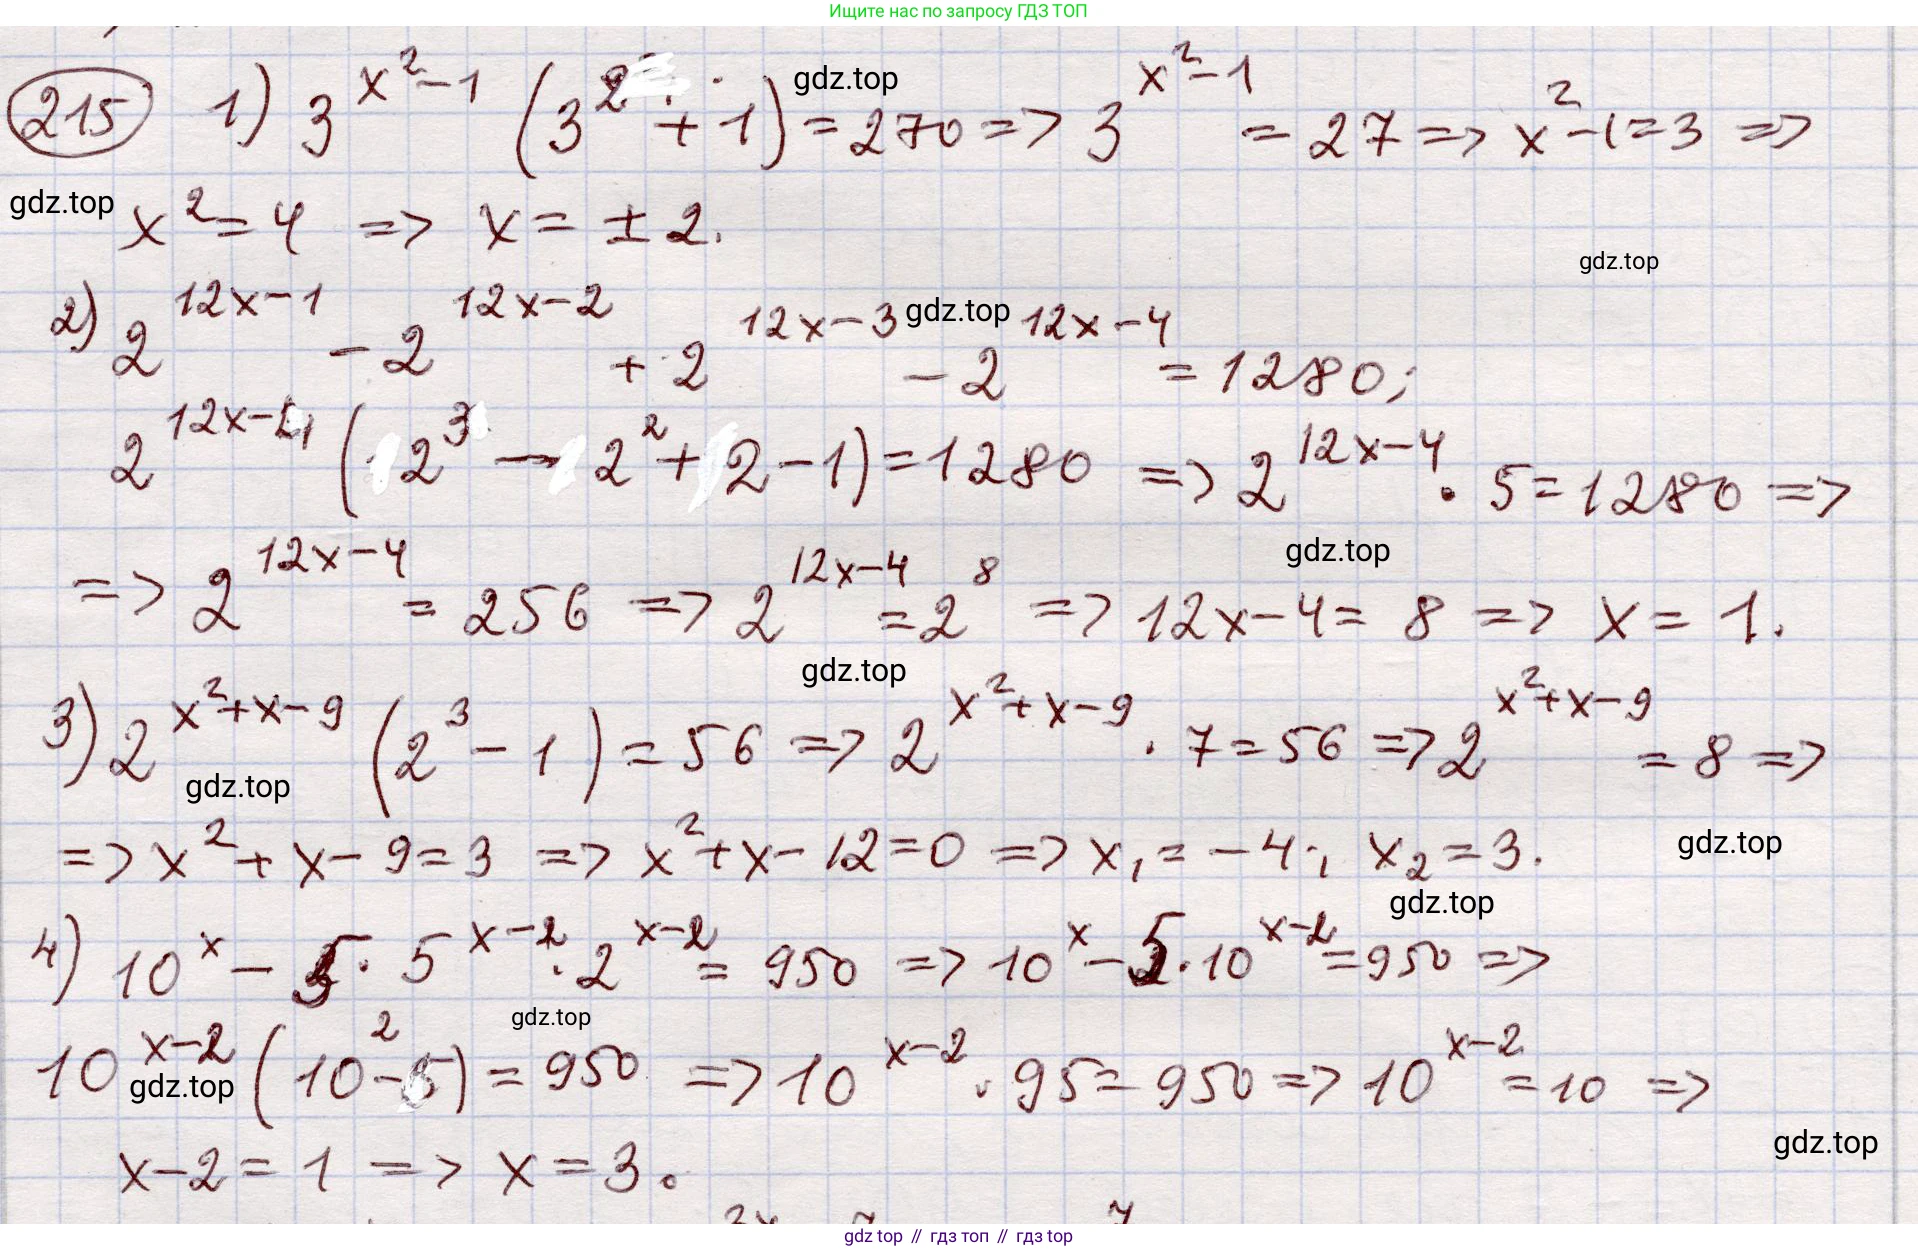 Ищите нас по запросу ГДЗ ТОП
215 1) 3^(x²-1) (3² + 1) = 270 => 3^(x²-1) = 27 => x²-1=3 =>
gdz.top
gdz.top
x² = 4 => x = ± 2.
gdz.top
2) 2^(12x-1) - 2^(12x-2) + 2^(12x-3) - 2^(12x-4) = 1280;
gdz.top
2^(12x-4) (2³ - 2² + 2 - 1) = 1280 => 2^(12x-4) · 5 = 1280 =>
gdz.top
=> 2^(12x-4) = 256 => 2^(12x-4) = 2⁸ => 12x-4 = 8 => x = 1.
gdz.top
3) 2^(x²+x-9) (2³ - 1) = 56 => 2^(x²+x-9) · 7 = 56 => 2^(x²+x-9) = 8 =>
gdz.top
=> x² + x - 9 = 3 => x² + x - 12 = 0 => x₁ = -4; x₂ = 3.
gdz.top
gdz.top
4) 10^x - 5 · 5^(x-2) · 2^(x-2) = 950 => 10^x - 5 · 10^(x-2) = 950 =>
gdz.top
10^(x-2) (10² - 5) = 950 => 10^(x-2) · 95 = 950 => 10^(x-2) = 10 =>
gdz.top
gdz.top
x-2 = 1 => x = 3.
gdz.top // гдз топ // gdz top